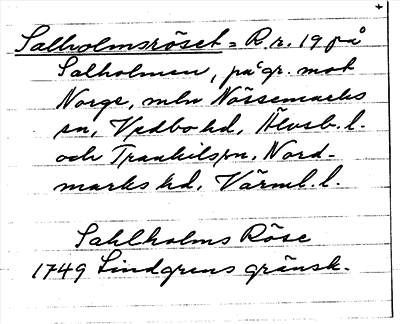 Salholmsröset = R.r. 19 på
Salholmen, på gr. mot
Norge, mln Nössemarks
sn, Vedbo hd, Älvsb. l.
och Trankils sn, Nord-
marks hd, Värml. l.
Sahlholms Röse
1749 Lindgrens gränsk.